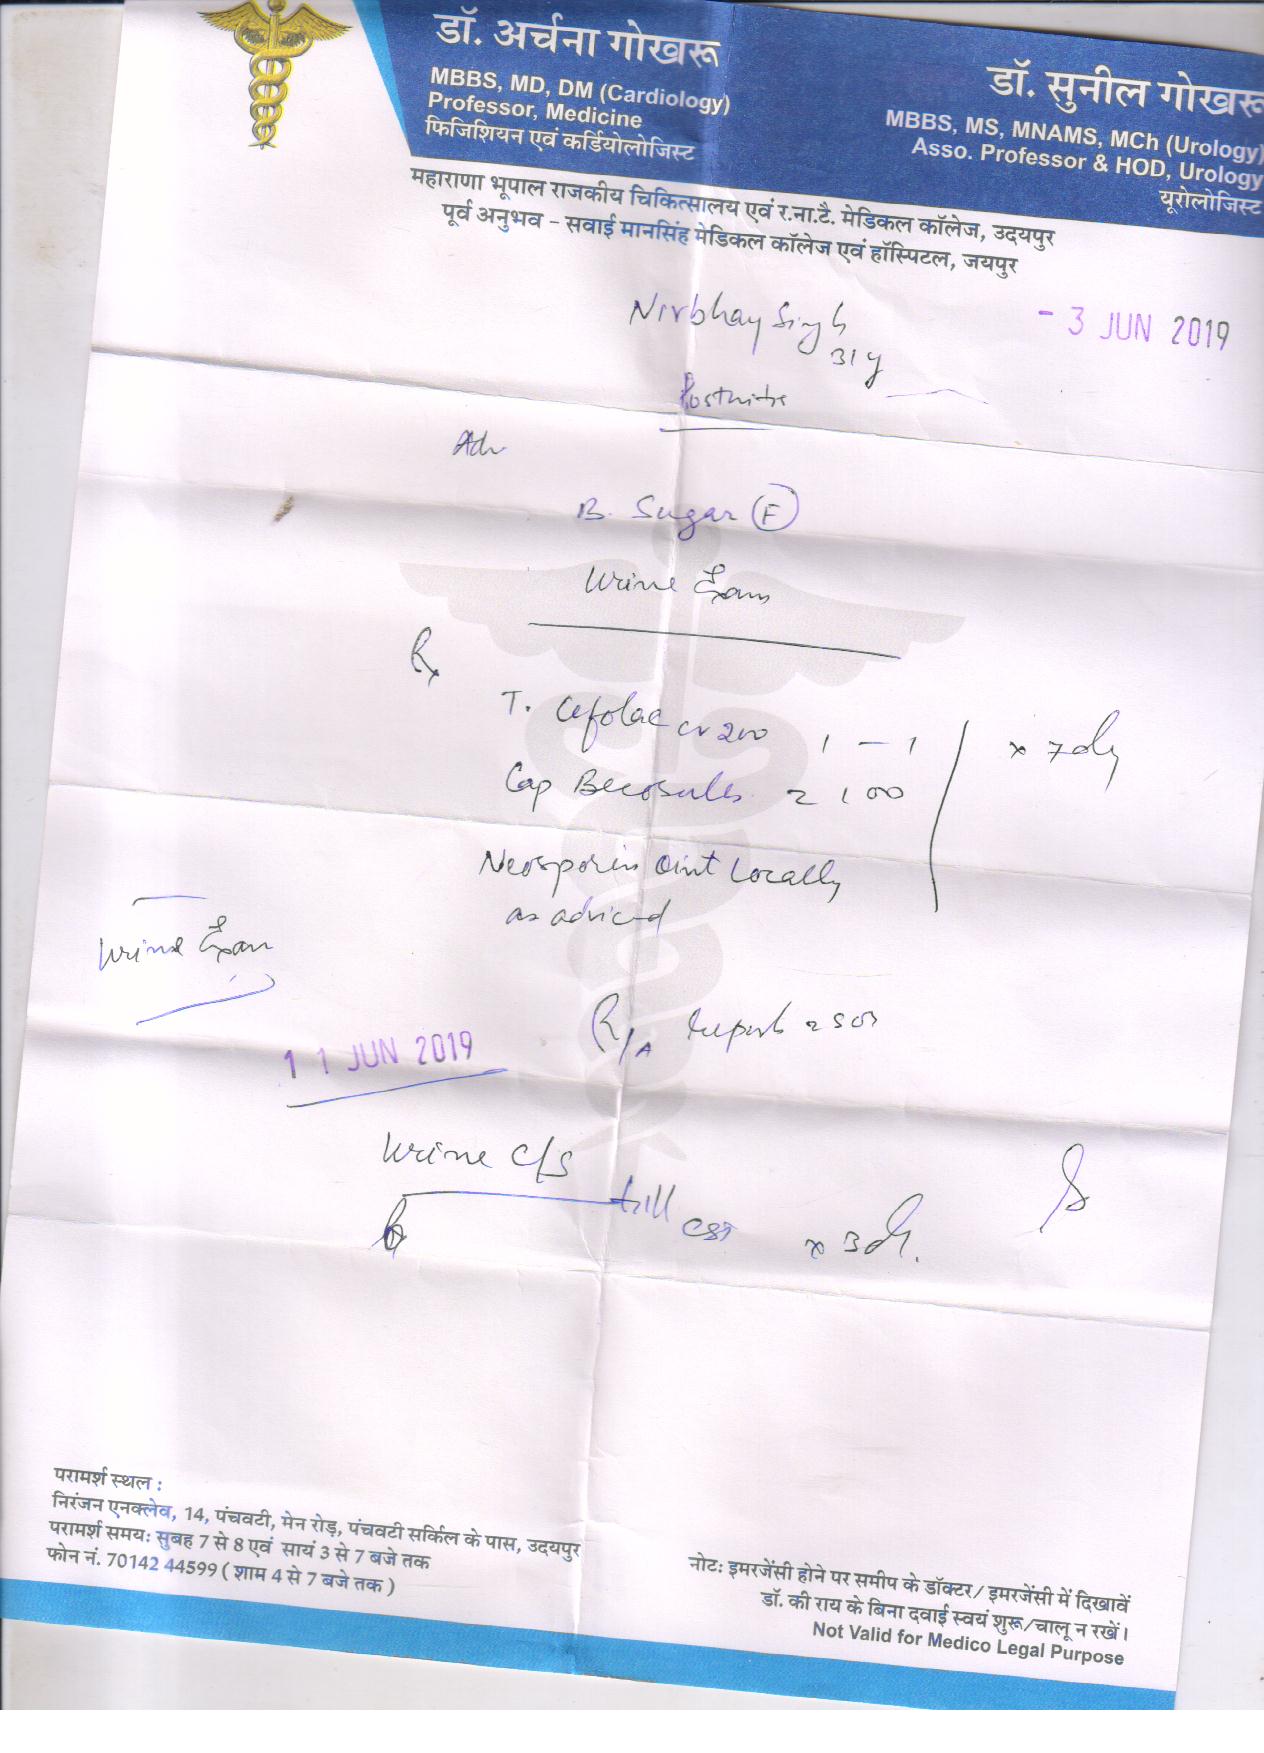 डॉ. अर्चना गोखरू
MBBS, MD, DM (Cardiology)
Professor, Medicine
फिजिशियन एवं कर्डियोलोजिस्ट
डॉ. सुनील गोखरू
MBBS, MS, MNAMS, MCh (Urology)
Asso. Professor & HOD, Urology
यूरोलोजिस्ट
महाराणा भूपाल राजकीय चिकित्सालय एवं र.ना.टै. मेडिकल कॉलेज, उदयपुर
पूर्व अनुभव – सवाई मानसिंह मेडिकल कॉलेज एवं हॉस्पिटल, जयपुर
Nirbhay Singh
31y
- 3 JUN 2019
Adv
B. Sugar (F)
Urine Exam
Rx
T. Cefolac cv 200 1 - 1 x 7 day
Cap Becosules
Neosporin oint Locally
as adviced
Urine Exam
R/A
1 1 JUN 2019
Urine C/S
till x 3d
परामर्श स्थल :
निरंजन एनक्लेव, 14, पंचवटी, मेन रोड़, पंचवटी सर्किल के पास, उदयपुर
परामर्श समयः सुबह 7 से 8 एवं सायं 3 से 7 बजे तक
फोन नं. 70142 44599 ( शाम 4 से 7 बजे तक )
नोटः इमरजेंसी होने पर समीप के डॉक्टर/ इमरजेंसी में दिखावें
डॉ. की राय के बिना दवाई स्वयं शुरू/चालू न रखें।
Not Valid for Medico Legal Purpose